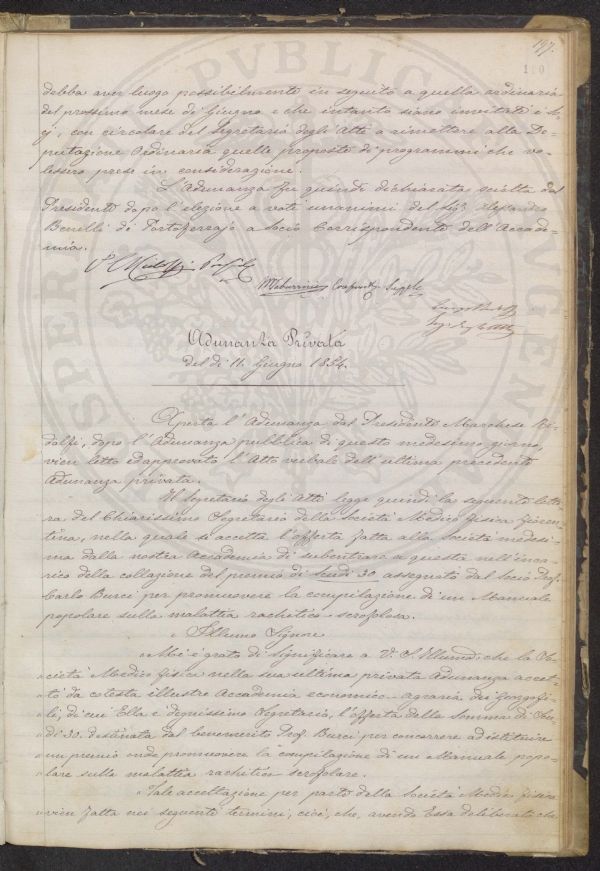 197.
110
debba aver luogo possibilmente in seguito a quella ordinaria
del prossimo mese di Giugno e che intanto siano invitati i
con circolare del Segretario degli Atti a rimettere alla De-
putazione Ordinaria quelle proposte di programmi che vo-
lessero prese in considerazione.
L'Adunanza fu quindi dichiarata sciolta dal
Presidente dopo l'elezione a voti unanimi del Sigr.
di Portoferrajo a Socio Corrispondente dell'Accade-
mia.
Adunanza Privata
del dì 11. Giugno 1854.
Aperta l'Adunanza dal Presidente Marchese Ri-
dolfi, dopo l'Adunanza pubblica di questo medesimo giorno,
vien letto ed approvato l'Atto verbale dell'ultima precedente
Adunanza privata.
Il Segretario degli Atti legge quindi la seguente lette-
ra, del Chiarissimo Segretario della Società Medico fisica fioren-
tina, nella quale si accetta l'offerta fatta alla Società medesi-
ma dalla nostra Accademia di subentrare a questa nell'inca-
rico della collazione del premio di Scudi 30 assegnato dal Socio Prof.
Carlo Burci per promuovere la compilazione di un Manuale
popolare sulla malattia rachitico scrofolosa.
" Illmo Signore
" Mi è grato di significare a V. S. Illuma che la So-
" cietà Medico fisica nella sua ultima privata Adunanza accet-
" tò da cotesta illustre Accademia economico-agraria dei Georgofi-
" li, di cui Ella è degnissimo Segretario, l'offerta della Somma di Scu-
" di 30. destinata dal benemerito Prof. Burci per concorrere ad istituire
" un premio onde promuovere la compilazione di un Manuale popo-
" lare sulla malattia rachitico scrofolare.
" Tale accettazione per parte della Società Medico fisica
" vien fatta nei seguenti termini, cioè, che, avendo Essa deliberato che